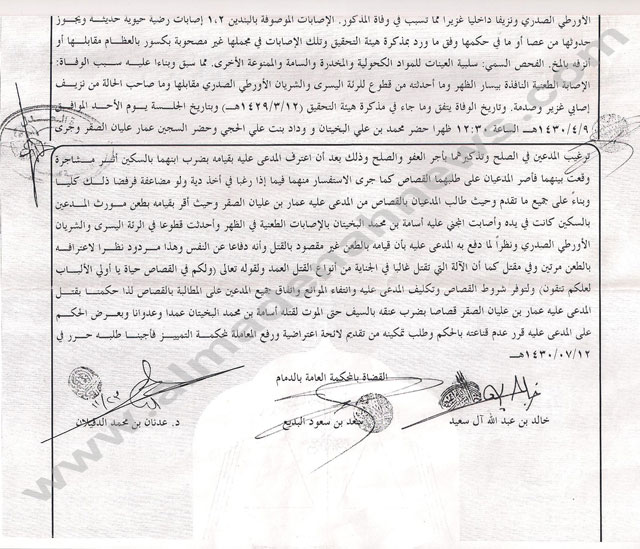 الأورطي الصدري ونزيفا داخليا غزيرا مما تسبب في وفاة المذكور. الإصابات الموصوفة بالبندين ١،٢ إصابات رضية حيوية حديثة ويجوز
حدوثها من عصا أو ما في حكمها وفق ما ورد بمذكرة هيئة التحقيق وتلك الإصابات في مجملها غير مصحوبة بكسور بالعظام مقابلها أو
أنزفه بالمخ. الفحص السمي: سلبية العينات للمواد الكحولية والمخدرة والسامة والممنوعة الأخرى. مما سبق وبناءا عليه سبب الوفاة:
الإصابة الطعنية النافذة بيسار الظهر وما أحدثته من قطوع للرئة اليسرى والشريان الأورطي الصدري مقابلها وما صاحب الحالة من نزيف
إصابي غزير وصدمة. وتاريخ الوفاة يتفق وما جاء في مذكرة هيئة التحقيق (١٤٢٩/٣/١٢هـ) وبتاريخ الجلسة يوم الأحد الموافق
١٤٣٠/٤/٩هـ الساعة ١٢:٣٠ ظهرا حضر محمد بن علي البخيتان و وداد بنت علي الحجي وحضر السجين عمار عليان الصقر وجرى
ترغيب المدعين في الصلح وتذكيرهما بأجر العفو والصلح وذلك بعد أن اعترف المدعى عليه بقيامه بضرب ابنهما بالسكين أثر مشاجرة
وقعت بينهما فأصر المدعيان على طلبهما القصاص كما جرى الاستفسار منهما فيما إذا رغبا في أخذ دية ولو مضاعفة فرفضا ذلك كليا
وبناء على جميع ما تقدم وحيث طالب المدعيان بالقصاص من المدعى عليه عمار بن عليان الصقر وحيث أقر بقيامه بطعن مورث المدعين
بالسكين كانت في يده وأصابت المجني عليه أسامة بن محمد البخيتان بالإصابات الطعنية في الظهر وأحدثت قطوعا في الرئة اليسرى والشريان
الأورطي الصدري ونظراً لما دفع به المدعى عليه بأن قيامه بالطعن غير مقصود بالقتل وأنه دفاعا عن النفس وهذا مردود نظرا لاعترافه
بالطعن مرتين وفي مقتل كما أن الآلة التي تقتل غالبا في الجناية من أنواع القتل العمد ولقوله تعالى (ولكم في القصاص حياة يا أولي الألباب
لعلكم تتقون) ولتوفر شروط القصاص وتكليف المدعى عليه وانتفاء الموانع واتفاق جميع المدعين على المطالبة بالقصاص لذا حكمنا بقتل
المدعى عليه عمار بن عليان الصقر قصاصا بضرب عنقه بالسيف حتى الموت لقتله أسامة بن محمد البخيتان عمدا وعدوانا وبعرض الحكم
على المدعى عليه قرر عدم قناعته بالحكم وطلب تمكينه من تقديم لائحة اعتراضية ورفع المعاملة لمحكمة التمييز فأجبنا طلبه حرر في
١٤٣٠/٠٧/١٢هـ
القضاة بالمحكمة العامة بالدمام
خالد بن عبد الله آل سعيد سعد بن سعود البديع د. عدنان بن محمد الدقيلان